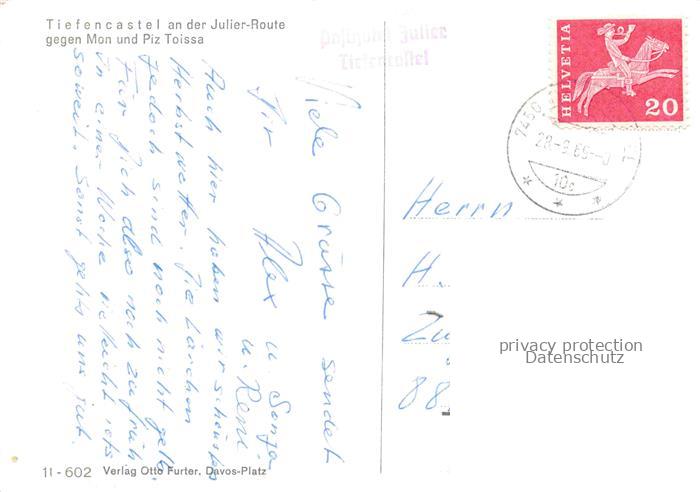 Tiefencastel an der Julier-Route
gegen Mon und Piz Toissa
Posthotel Julier
Tiefencastel
HELVETIA
20
7450
28.-9.65
10c
Viele Grüsse sendet
Dir Alex u. Sonja
u. René
Auch hier haben wir schönstes
Herbstwetter. Die Lärchen
jedoch sind noch nicht gelb.
Für Dich also noch zu früh
in einer Woche vielleicht ists
soweit. Sonst gehts uns gut.
Herrn
H.
Zu
88
privacy protection
Datenschutz
11-602 Verlag Otto Furter, Davos-Platz